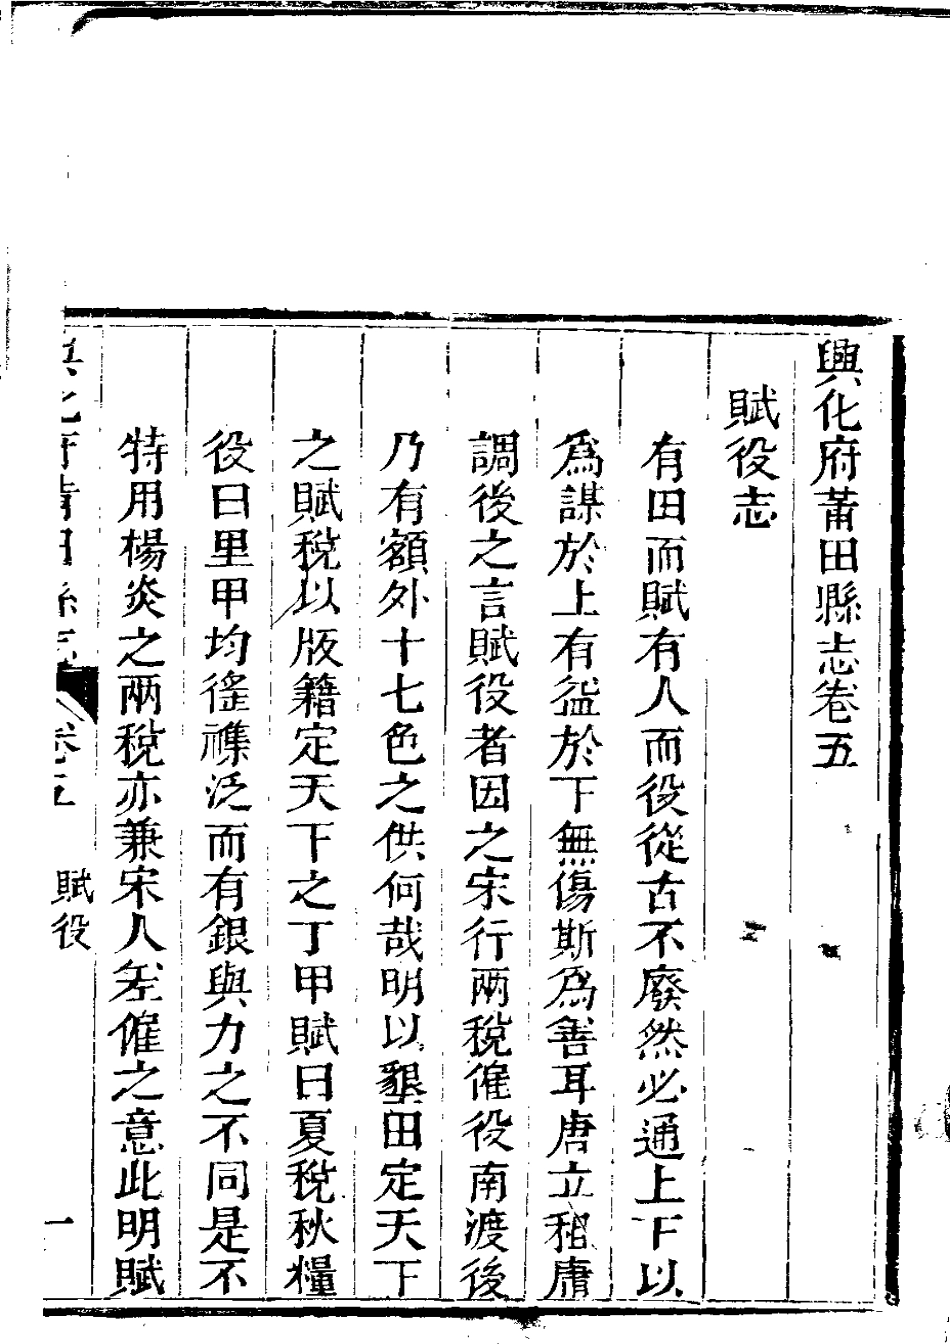 興化府莆田縣志卷五
賦役志
有田而賦有人而役從古不廢然必通上下以
為謀於上有益於下無傷斯為善耳唐立租庸
調後之言賦役者因之宋行兩稅僱役南渡後
乃有額外十七色之供何哉明以墾田定天下
之賦稅以版籍定天下之丁甲賦曰夏稅秋糧
役曰里甲均徭襍泛而有銀與力之不同是不
特用楊炎之兩稅亦兼宋人差僱之意此明賦
興化府莆田縣志 卷五 賦役 一